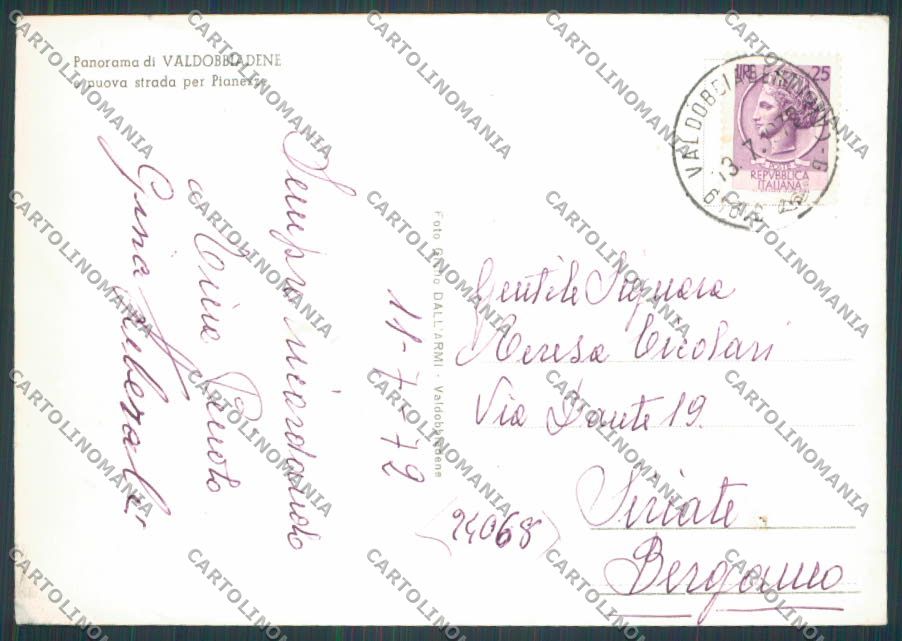 Panorama di VALDOBBIADENE
nuova strada per Pianezze
Sempre ricordando
Gina
11-7-72
Foto DALL'ARMI - Valdobbiadene
LIRE 25
POSTE
REPVBBLICA
ITALIANA
VALDOBBIADENE
13.7.
Gentile Signora
Teresa Nicolari
Via Dante 19.
Seriate
(24068)
Bergamo
CARTOLINOMANIA